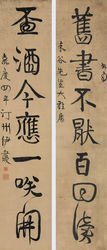 舊書不厭百回讀
未谷先生大雅屬
盃酒今應一笑開
嘉慶四年汀州伊秉綬